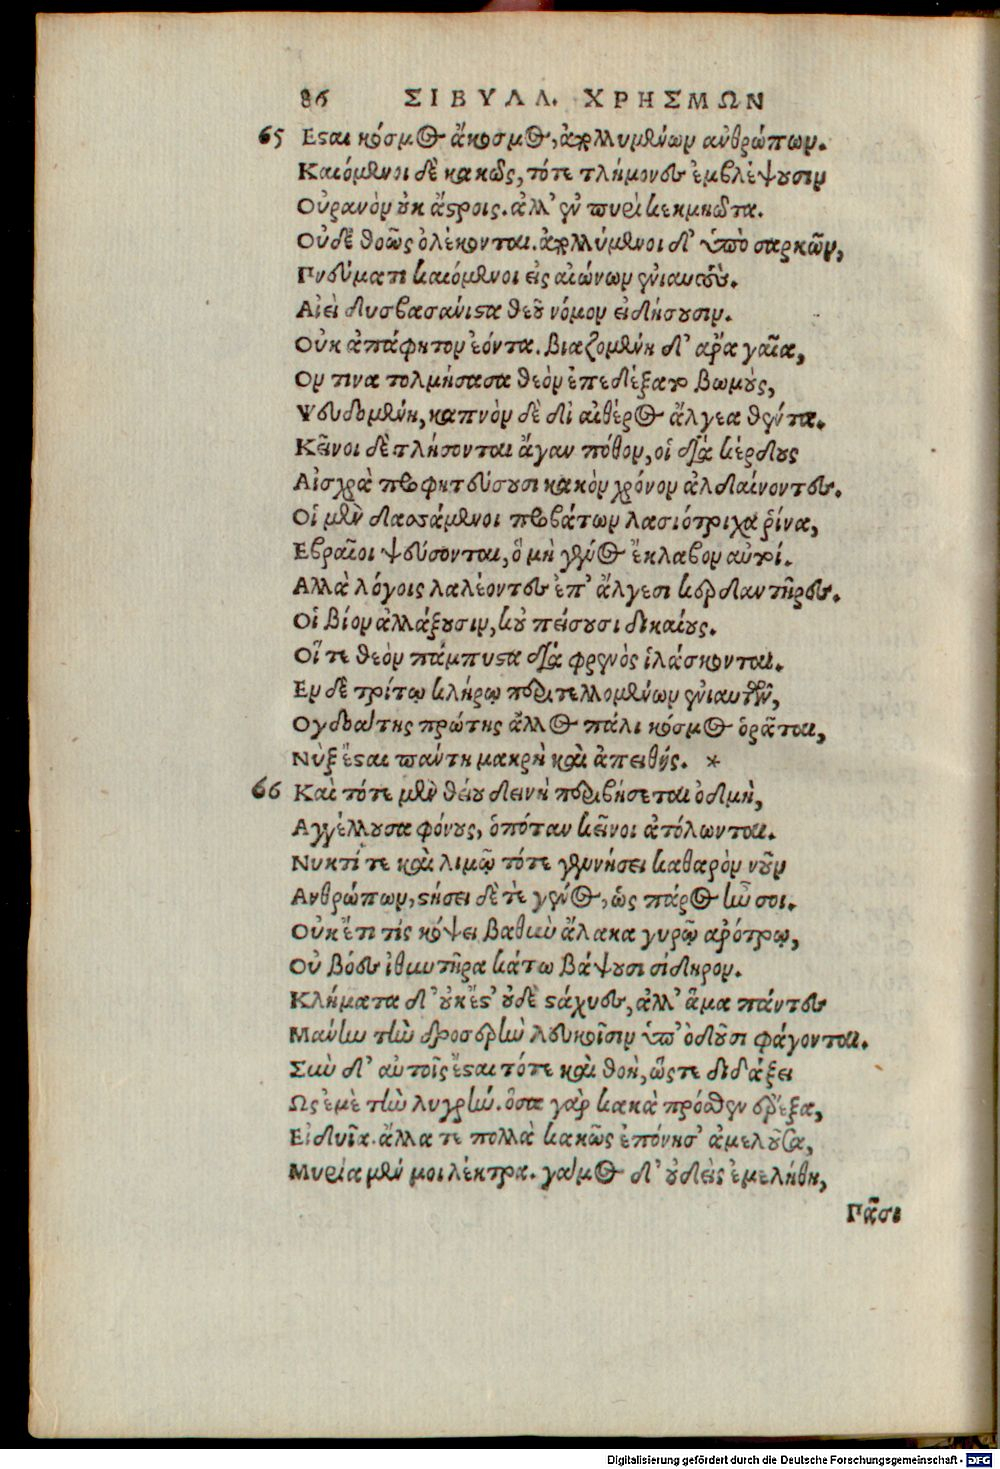 86 ΣΙΒΥΛΛ. ΧΡΗΣΜΩΝ
65 Εσαι κόσμος ἄκοσμος, ἀπολλυμένων ανθρώπων.
Καιόμενοι δὲ κακῶς, τότε τλήμονες ἐμβλέψουσιν
Οὐρανὸν οὐκ ἄστροις. ἀλλ' ἐν πυρὶ κεκμηῶτα.
Οὐδὲ θοῶς ὀλέκονται. ἀπολλύμενοι δ' ὑπὸ σαρκῶν,
Πνεύματι καιόμενοι εἰς αἰώνων ἐνιαυτοὺς.
Αἰεὶ δυσβασάνιστα θεοῦ νόμον εἰδήσουσιν.
Οὐκ ἀπάφητον ἐόντα. βιαζομένη δ' ἄρα γαῖα,
Ον τινα τολμήσασα θεὸν ἐπεδέξατο βωμοὺς,
Ψευδομένη, καπνὸν δὲ δι αἰθέρος ἄλγεα θέντα.
Κεῖνοι δὲ τλήσονται ἄγαν πόθον, οἱ διὰ κέρδους
Αἰσχρὰ προφητεύσουσι κακὸν χρόνον ἀλδαίνοντες.
Οἱ μὲν δασσάμενοι προβάτων λασιότριχα ῥίνα,
Εβραῖοι ψεύσονται, ὃ μὴ γένος ἔκλαβον αὐτοί.
Αλλὰ λόγοις λαλέοντες ἐπ' ἄλγεσι κερδαντῆρες.
Οἱ βίον ἀλλάξουσιν, κοὐ πείσουσι δικαίους.
Οἵ τε θεὸν πάμπυστα διὰ φρενὸς ἱλάσκονται.
Εν δὲ τρίτῳ κλήρῳ περιτελλομένων ἐνιαυτῶν,
Ογδοάτης πρώτης ἄλλος πάλι κόσμος ὁρᾶται,
Νὺξ ἔσται πάντη μακρὴ καὶ ἀπειθής. *
66 Καὶ τότε μὲν θείου δεινὴ περιβήσεται ὀδμὴ,
Αγγέλλουσα φόνους, ὁπόταν κεῖνοι ἀπόλωνται.
Νυκτί τε καὶ λιμῷ τότε γεννήσει καθαρὸν νοῦν
Ανθρώπων, στήσει δὲ τὲ γένος, ὡς πάρος ἦν σοι.
Οὐκ ἔτι τίς κόψει βαθὺν ἄλακα γυρῷ ἀρότρῳ,
Οὐ βόες ἰθυντῆρα κάτω βάψουσι σίδηρον.
Κλήματα δ' οὐκ ἔστ' οὐδὲ στάχυες, ἀλλ' ἅμα πάντες
Μάννην τὴν δροσερὴν λευκοῖσιν ὑπ' ὀδοῦσι φάγονται.
Σὺν δ' αὐτοῖς ἔσται τότε καὶ θεὴ, ὥστε διδάξει
Ως ἐμὲ τὴν λυγρήν. ὅσα γὰρ κακὰ πρόσθεν ἔρεξα,
Εἰδυῖα. ἄλλα τε πολλὰ κακῶς ἐπόνησ' ἀμελοῦσα,
Μυρία μέν μοι λέκτρα. γάμος δ' οὐδεὶς ἐμελήθη,
Πᾶσι
Digitalisierung gefördert durch die Deutsche Forschungsgemeinschaft - DFG